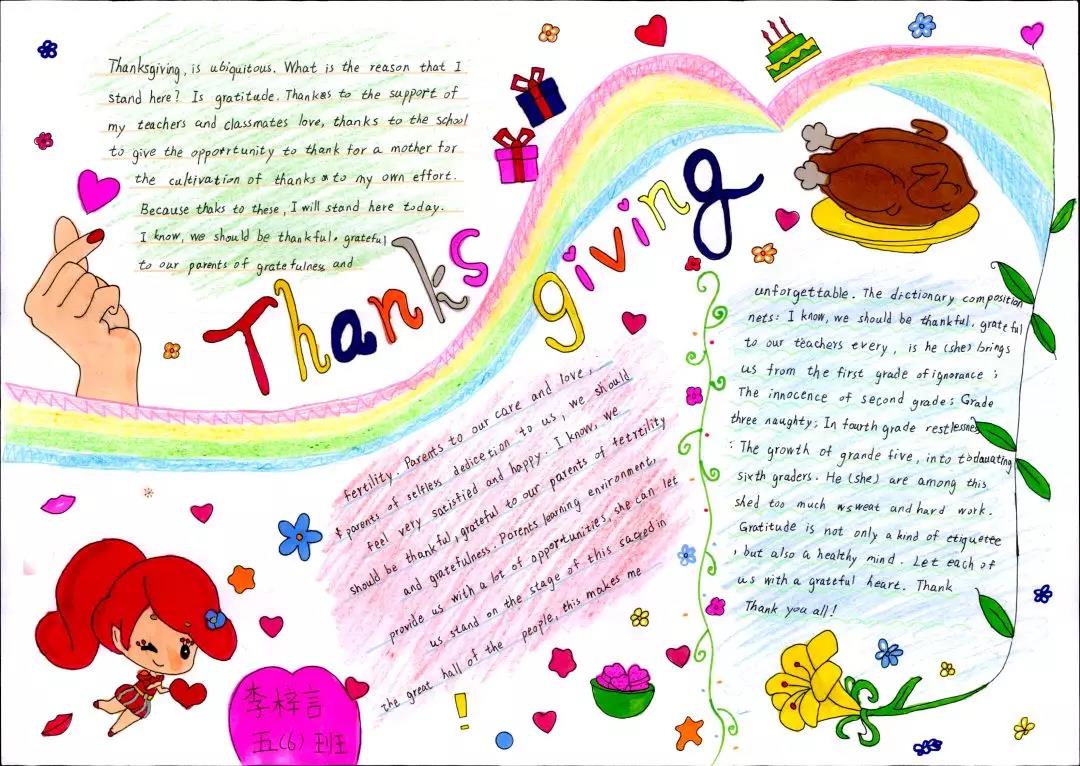 Thanksgiving, is ubiquitous. What is the reason that I
stand here? Is gratitude. Thankes to the support of
my teachers and classmates love, thanks to the school
to give the opportunity to thank for a mother for
the cultivation of thanks to my own effort.
Because thaks to these, I will stand here today.
I know, we should be thankful, grateful
to our parents of gratefulness and
Thanks
giving
fertility. Parents to our care and love,
parents of selfless dedicetion to us, we should
feel very satisfied and happy. I know, we
should be thankful, grateful to our parents of fetrtility
and gratefulness. Parents learning environment,
provide us with a lot of opportunities, she can let
us stand on the stage of this sacred in
the great hall of the people, this makes me
unforgettable. The dictionary composition
nets: I know, we should be thankful, grateful
to our teachers every, is he (she) brings
us from the first grade of ignorance;
The innocence of second grade; Grade
three naughty; In fourth grade restlessness
: The growth of grande five, into todauating
sixth graders. He (she) are among this
shed too much wsweat and hard work.
Gratitude is not only a kind of etiquette
, but also a healthy mind. Let each of
us with a grateful heart. Thank
Thank you all!
李梓言
五(6)班